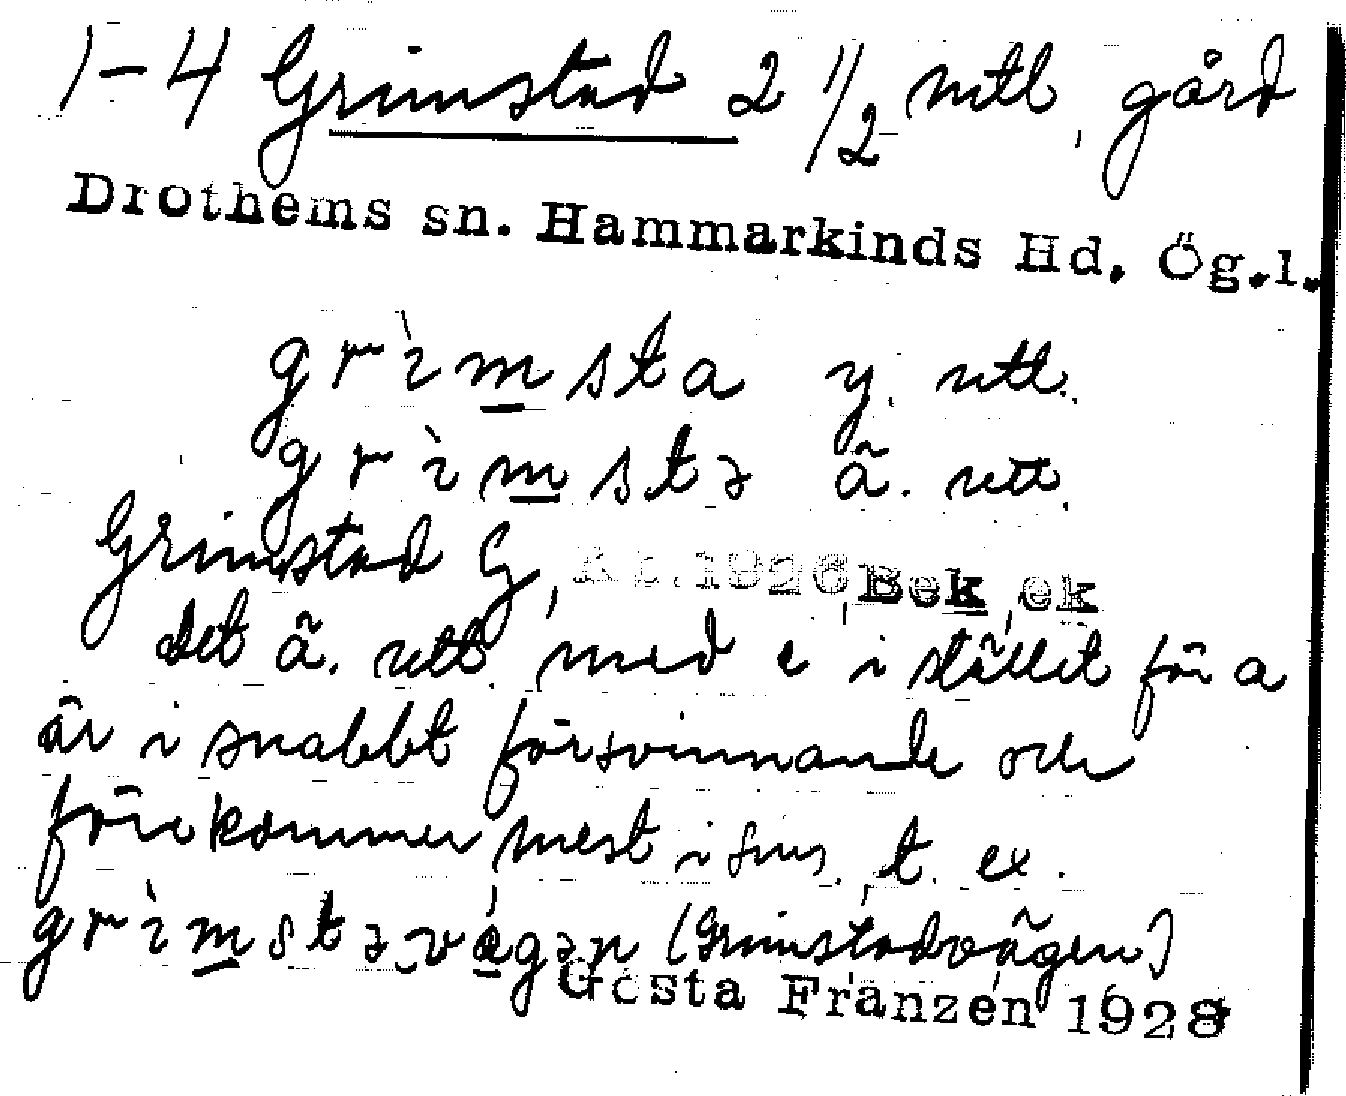 1-4 Grimstad 2 1/2 mtl, gård
Drothems sn. Hammarkinds Hd. Ög.l.
grìmsta y. utt.
grìmstə ä. utt.
Grimstad G, 1926 Bek, ek
det ä. utt. med e i stället för a
är i snabbt försvinnande och
förekommer mest i sms, t. ex.
grìmstəvägən (Grimstadvägen)
Gösta Franzén 1928